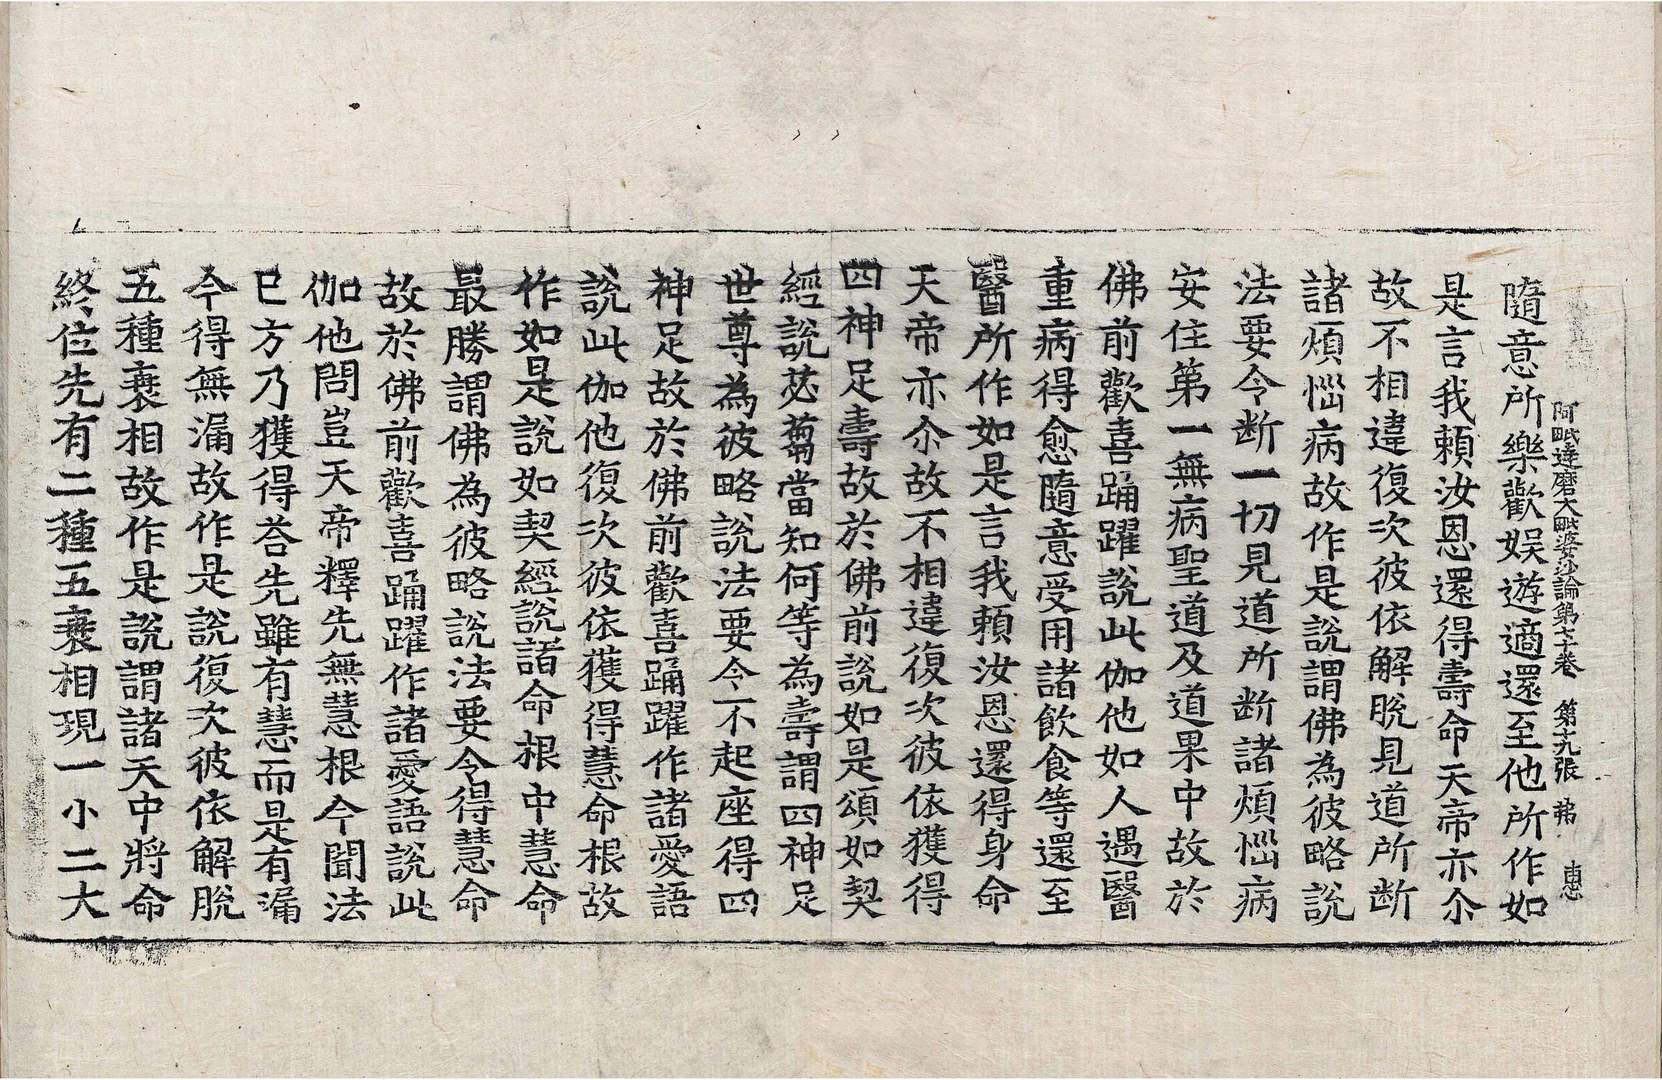 阿毗達磨大毗婆沙論第七十卷　第十九張　弗　志
隨意所樂歡娱遊適還至他所作如
是言我頼汝恩還得壽命天帝亦尒
故不相違復次彼依解脫見道所断
諸煩惱病故作是說謂佛為彼略說
法要令断一切見道所断諸煩惱病
安住第一無病聖道及道果中故於
佛前歡喜踊躍說此伽他如人遇醫
重病得愈隨意受用諸飲食等還至
醫所作如是言我頼汝恩還得身命
天帝亦尒故不相違復次彼依獲得
四神足壽故於佛前說如是頌如契
經說苾蒭當知何等為壽謂四神足
世尊為彼略說法要令不起座得四
神足故於佛前歡喜踊躍作諸愛語
說此伽他復次彼依獲得慧命根故
作如是說如契經說諸命根中慧命
最勝謂佛為彼略說法要令得慧命
故於佛前歡喜踊躍作諸愛語說此
伽他問豈天帝釋先無慧根今聞法
已方乃獲得荅先雖有慧而是有漏
今得無漏故作是說復次彼依解脫
五種衰相故作是說謂諸天中將命
終位先有二種五衰相現一小二大